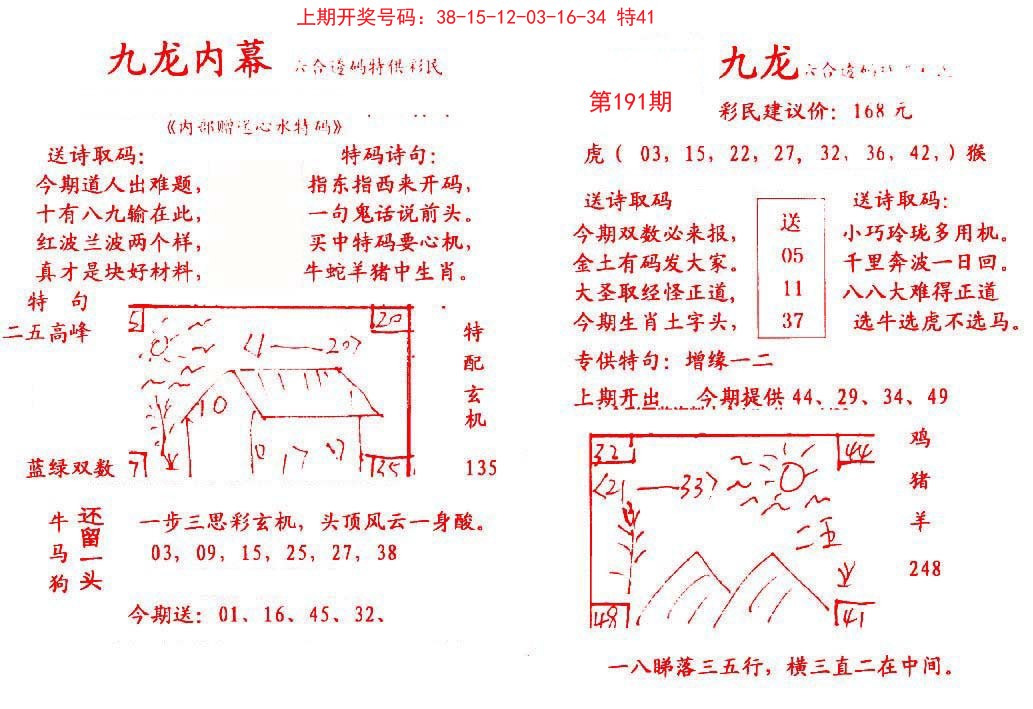 上期开奖号码：38-15-12-03-16-34 特41
九龙内幕 六合透码特供彩民
《内部赠送心水特码》
送诗取码：
今期道人出难题，
十有八九输在此，
红波兰波两个样，
真才是块好材料，
特码诗句：
指东指西来开码，
一句鬼话说前头。
买中特码要心机，
牛蛇羊猪中生肖。
特 句
二五高峰
蓝绿双数
5
20
〈1——20〉
10
0 17 0
7
35
特配玄机
135
牛马狗
还留一头
一步三思彩玄机，头顶风云一身酸。
03，09，15，25，27，38
今期送：01、16、45、32、
九龙 六合透码
第191期
彩民建议价：168 元
虎（ 03，15，22，27，32，36，42，）猴
送诗取码
今期双数必来报，
金土有码发大家。
大圣取经怪正道，
今期生肖土字头，
送
05
11
37
送诗取码：
小巧玲珑多用机。
千里奔波一日回。
八八大难得正道
选牛选虎不选马。
专供特句：增缘一二
上期开出 今期提供 44、29、34、49
32
44
〈21——33〉
二五
48
41
鸡
猪
羊
248
一八睇落三五行，横三直二在中间。